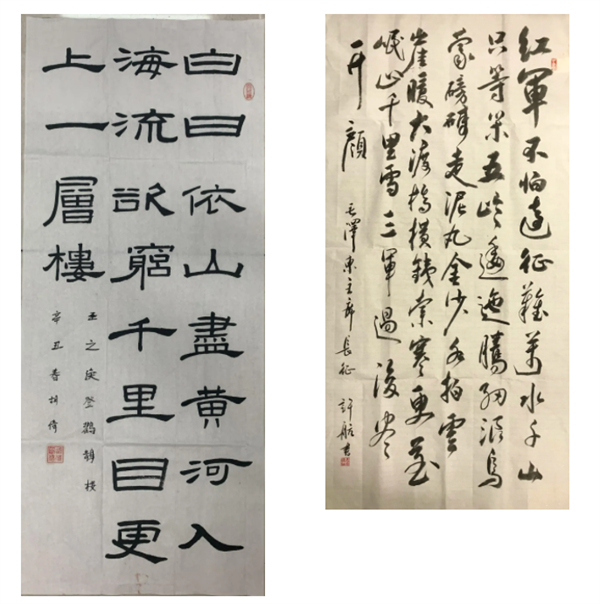 白日依山盡黃河入
海流欲窮千里目更
上一層樓
王之渙登鸛鵲樓
辛丑春
紅軍不怕遠征難萬水千山
只等閑五嶺逶迤騰細浪烏
蒙磅礴走泥丸金沙水拍雲
崖暖大渡橋橫鐵索寒更喜
岷山千里雪三軍過後盡
開顏
毛澤東主席長征 許航書